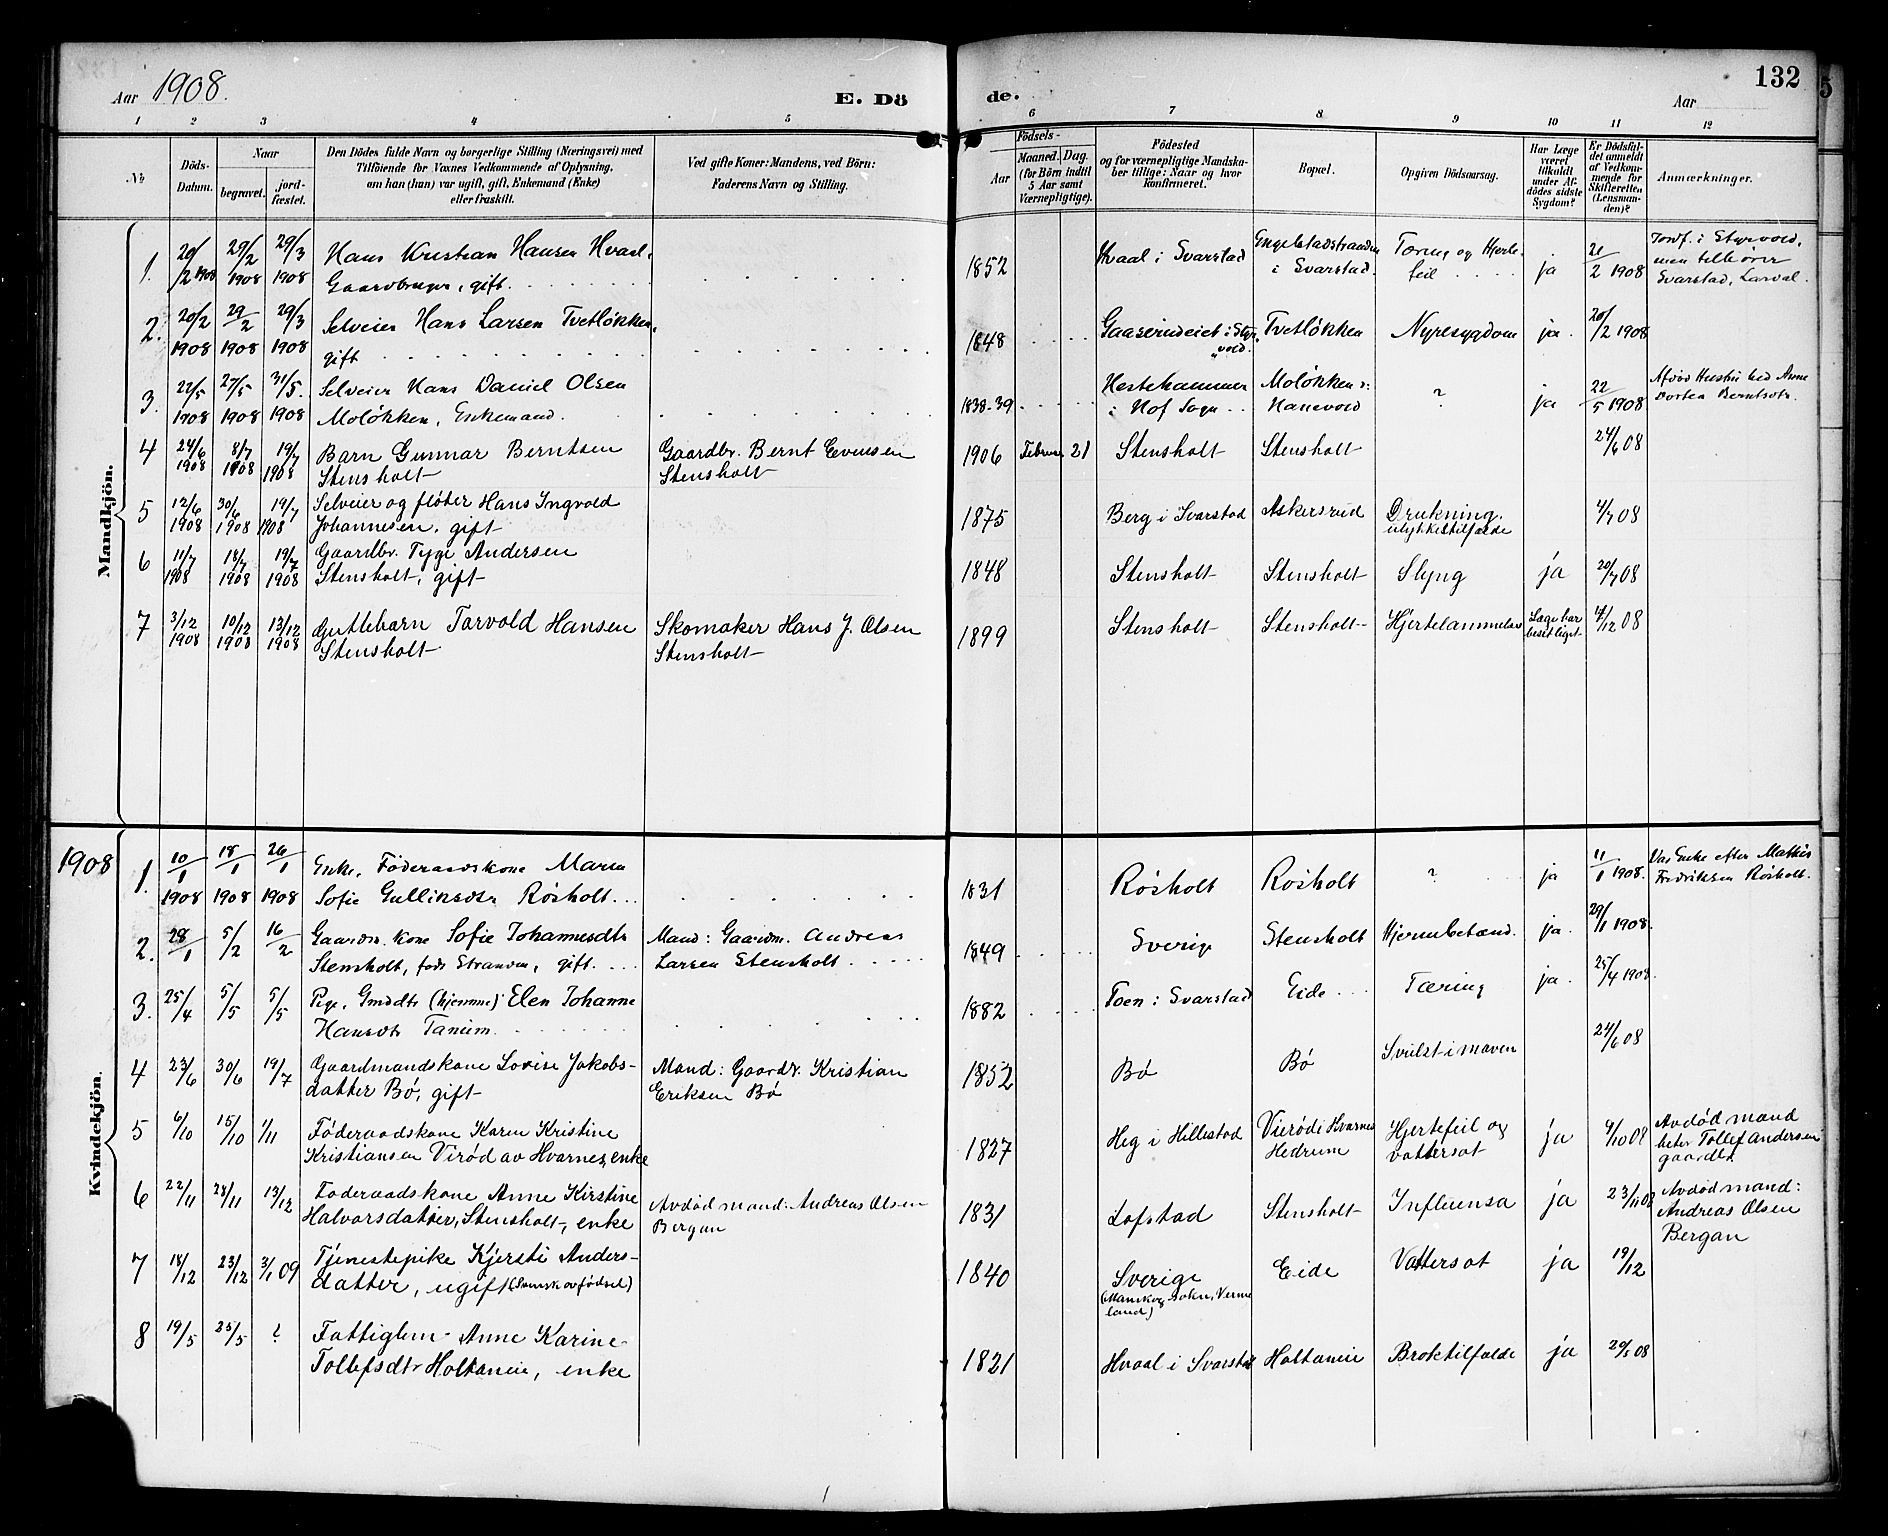 Aar 1908.
E. Dö
de.
132
Aar
1 2 3 4 5 6 7 8 9 10 11 12
No
Döds-Datum.
Naar
begravet.
jord-fæstet.
Den Dödes fulde Navn og borgerlige Stilling (Næringsvei) med
Tilföiende for Voxnes Vedkommende af Oplysning,
om han (hun) var ugift, gift, Enkemand (Enke)
eller fraskilt.
Ved gifte Koner: Mandens, ved Börn:
Faderens Navn og Stilling.
Födsels-
Aar
Maaned. Dag.
(for Börn indtil
5 Aar samt
Værnepligtige).
Födested
og for værnepligtige Mandska-
ber tillige: Naar og hvor
konfirmeret.
Bopæl.
Opgiven Dödsaarsag.
Har Læge
været
tilkaldt
under Af-
dödes sidste
Sygdom?
Er Dödsfal-
det anmeldt
af Vedkom-
mende for
Skifteretten
(Lensman-
den)?
Anmærkninger.
Mandkjön.
1. 20/2 1908 29/2 1908 29/3 1908 Hans Kristian Hansen Hvaal,
Gaardbruger, gift.
1852 Hvaal i Svarstad Engelstadstranden
i Svarstad. Tæring og Hjerte-
feil ja 21/2 1908 Jordf. i Styrvold,
men tilhører
Svarstad, Larval.
2. 20/2 1908 29/2 1908 29/3 1908 Selveier Hans Larsen Tvetløkken,
gift
1848 Gaaserudeiet i Styr-
vold. Tvetløkken Nyresygdom ja. 20/2 1908
3. 22/5 1908 27/5 1908 31/5. 1908 Selveier Hans Daniel Olsen
Moløkken, Enkemand.
1838-39 Hestehammer
i Hof Sogn Moløkken v:
Hanevold ? ja 22/5 1908 Afdød Hustru hed Anne
Dortea Berntsdtr.
4 24/6 1908 8/7 1908 19/7 1908 Barn Gunnar Berntsen
Stensholt
Gaardbr. Bernt Evensen
Stensholt
1906 Februar 21 Stensholt Stensholt 24/6 08
5 12/6 1908 30/6 1908 19/7 1908 Selveier og fløter Hans Ingvold
Johannesen, gift
1875 Berg i Svarstad Askersrud Drukning.
ulykkestilfælde 4/7 08
6 11/7 1908 18/7 1908 19/7 1908 Gaardbr. Tyge Andersen
Stensholt, gift
1848 Stensholt Stensholt Slyng ja 20/7 08
7 3/12 1908 10/12 1908 13/12 1908 Guttebarn Torvold Hansen
Stensholt
Skomaker Hans J. Olsen
Stensholt
1899 Stensholt Stensholt Hjertelammelse Læge har
besiktiget 14/12 08
1908
Kvindekjön.
1. 10/1 1908 18/1 1908 26/1 1908 Enke, Føderaadskone Maren
Sofie Gulliksdtr Røsholt.
1831 Røsholt Røsholt ? ja 11/1 1908. Var Enke efter Mathis
Fredriksen Røsholt.
2. 28/1 5/2 16/2 Gaardm. kone Sofie Johannesdtr
Stensholt, født Stranden, gift.
Mand: Gaardm. Andreas
Larsen Stensholt
1849 Sverige Stensholt Hjernebetænd. ja. 29/1 1908.
3. 25/4 5/5 5/5 Pige, Gmddtr (hjemme) Elen Johanne
Hansdtr Tanum
1882 Toen i Svarstad Eide Tæring ja. 25/4 1908.
4 23/6 30/6 19/7 Gaardmandskone Lovise Jakobs-
datter Bø, gift
Mand: Gaardr. Kristian
Eriksen Bø
1852 Bø Bø Svulst i maven 24/6 08
5 6/10 15/10 1/11 Føderaadskone Karen Kristine
Kristiansen Virød av Hvarnes, enke
1827 Heg i Hillestad Vierød i Hvarnes
Hedrum Hjertefeil og
vattersot ja 9/10 08 Avdød mand
heter Tollef Andersen
gaardbr.
6 22/11 28/11 13/12 Føderaadskone Anne Kirstine
Halvorsdatter, Stensholt, enke
Avdød mand: Andreas Olsen
Bergan
1831 Lofstad Stensholt Influensa ja 23/11 08 Avdød mand:
Andreas Olsen
Bergan
7 18/12 23/12 3/1 09 Tjenestepike Kjersti Anders-
datter, ugift (Svensk av fødsel)
1840 Sverige
(Manskog sokn, Verm-
land) Eide Vattersot ja 19/12
8 19/5 25/5 ? Fattiglem Anne Karine
Tollefsdtr Holtaneie, enke
1821 Hvaal i Svarstad Holtaneie Broktilfælde ja 20/5 08